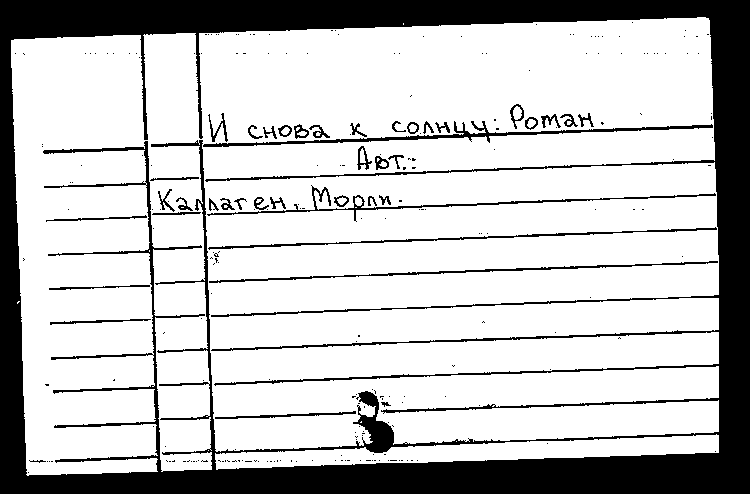 И снова к солнцу: Роман.
Авт.:
Каллаген, Морли.